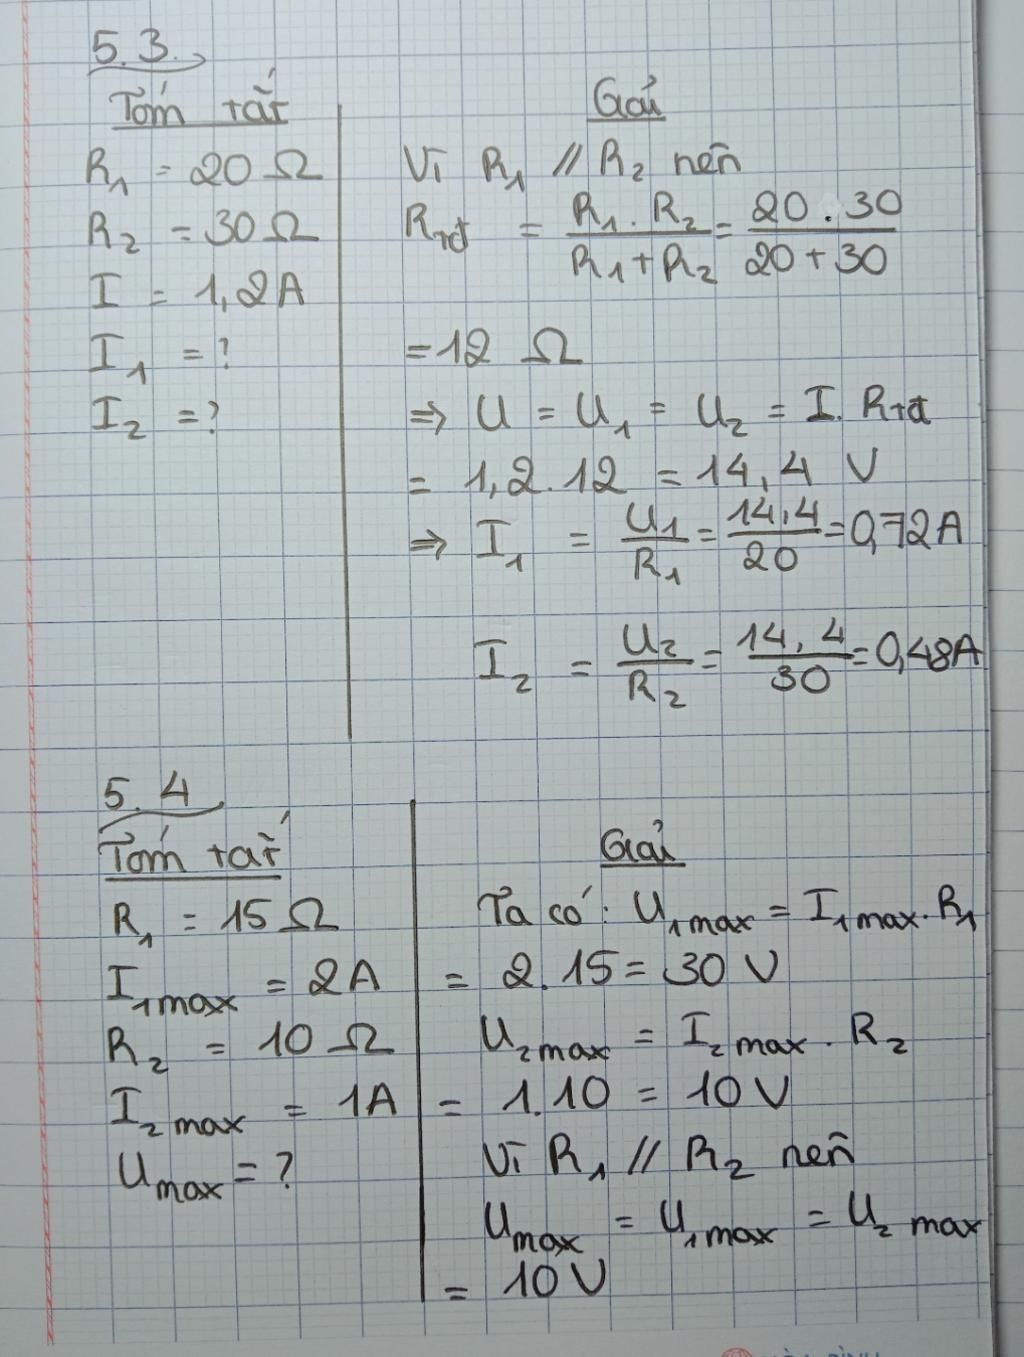 5.3
Tóm tắt
R₁ = 20 Ω
R₂ = 30 Ω
I = 1,2A
I₁ = ?
I₂ = ?
Giải
Vì R₁ // R₂ nên
Rtđ = R₁.R₂/R₁+R₂ = 20.30/20+30
= 12 Ω
⇒ U = U₁ = U₂ = I. Rtđ
= 1,2.12 = 14,4 V
⇒ I₁ = U₁/R₁ = 14,4/20 = 0,72A
I₂ = U₂/R₂ = 14,4/30 = 0,48A
5.4
Tóm tắt
R₁ = 15 Ω
I₁max = 2A
R₂ = 10 Ω
I₂max = 1A
Umax = ?
Giải
Ta có: U₁max = I₁max.R₁
= 2.15 = 30 V
U₂max = I₂max. R₂
= 1.10 = 10V
Vì R₁ // R₂ nên
Umax = U₁max = U₂max
= 10V